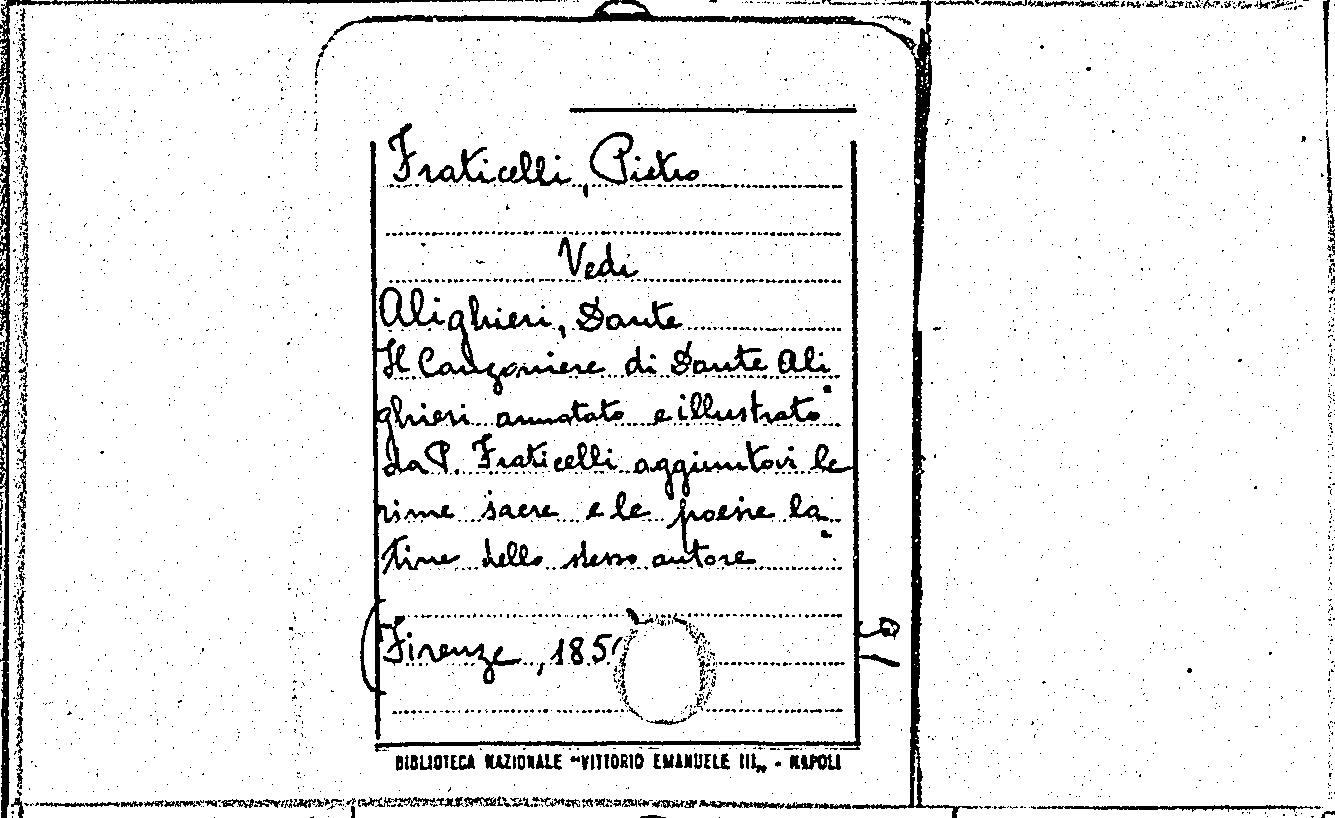 Fraticelli, Pietro
Vedi
Alighieri, Dante
Il Canzoniere di Dante Ali
ghieri annotato e illustrato
da P. Fraticelli aggiuntovi le
rime sacre e le poesie la
tine dello stesso autore
(Firenze, 185
BIBLIOTECA NAZIONALE "VITTORIO EMANUELE III„ - NAPOLI